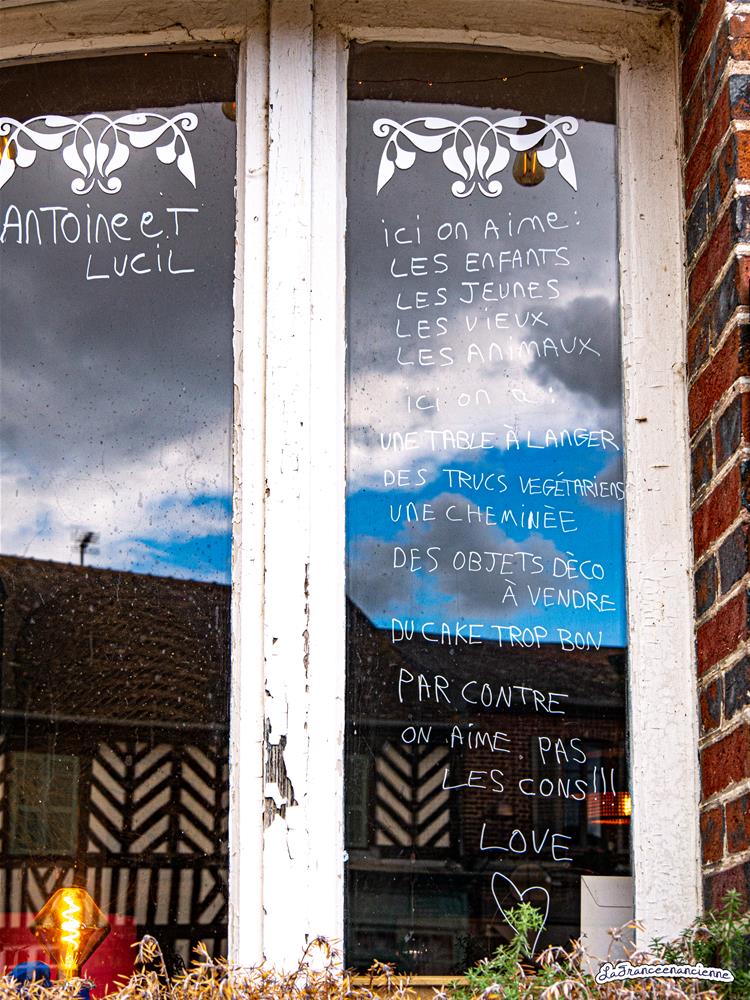 Antoine et
Lucil
ici on Aime:
LES ENFANTS
LES JEUNES
LES VIEUX
LES ANIMAUX
ici on a:
UNE TABLE À LANGER
DES TRUCS VEGÉTARIENS
UNE CHEMINÈE
DES OBJETS DÈCO
À VENDRE
DU CAKE TROP BON
PAR CONTRE
ON AIME PAS
LES CONS!!!
LOVE
LaFranceenancienne